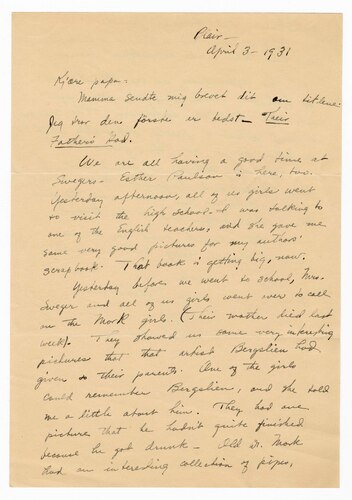 Blair-
April 3- 1931
Kjære papa-
Mamma sendte mig brevet dit om titlene-
Jeg tror den første er bedst- Their
Father's God.
We are all having a good time at
Swegers- Esther Paulson is here, too.
Yesterday afternoon, all of us girls went
to visit the high school- I was talking to
one of the English teachers, and she gave me
some very good pictures for my authors'
scrapbook. That book is getting big, now.
Yesterday before we went to school, Mrs.
Sweger and all of us girls went over to call
on the Mork girls. (Their mother died last
week). They showed us some very interesting
pictures that that artist Bergslien had
given to their parents. One of the girls
could remember Bergslien, and she told
me a little about him. They had one
picture that he hadn't quite finished
because he got drunk- Old Dr. Mork
had an interesting collection of pipes,